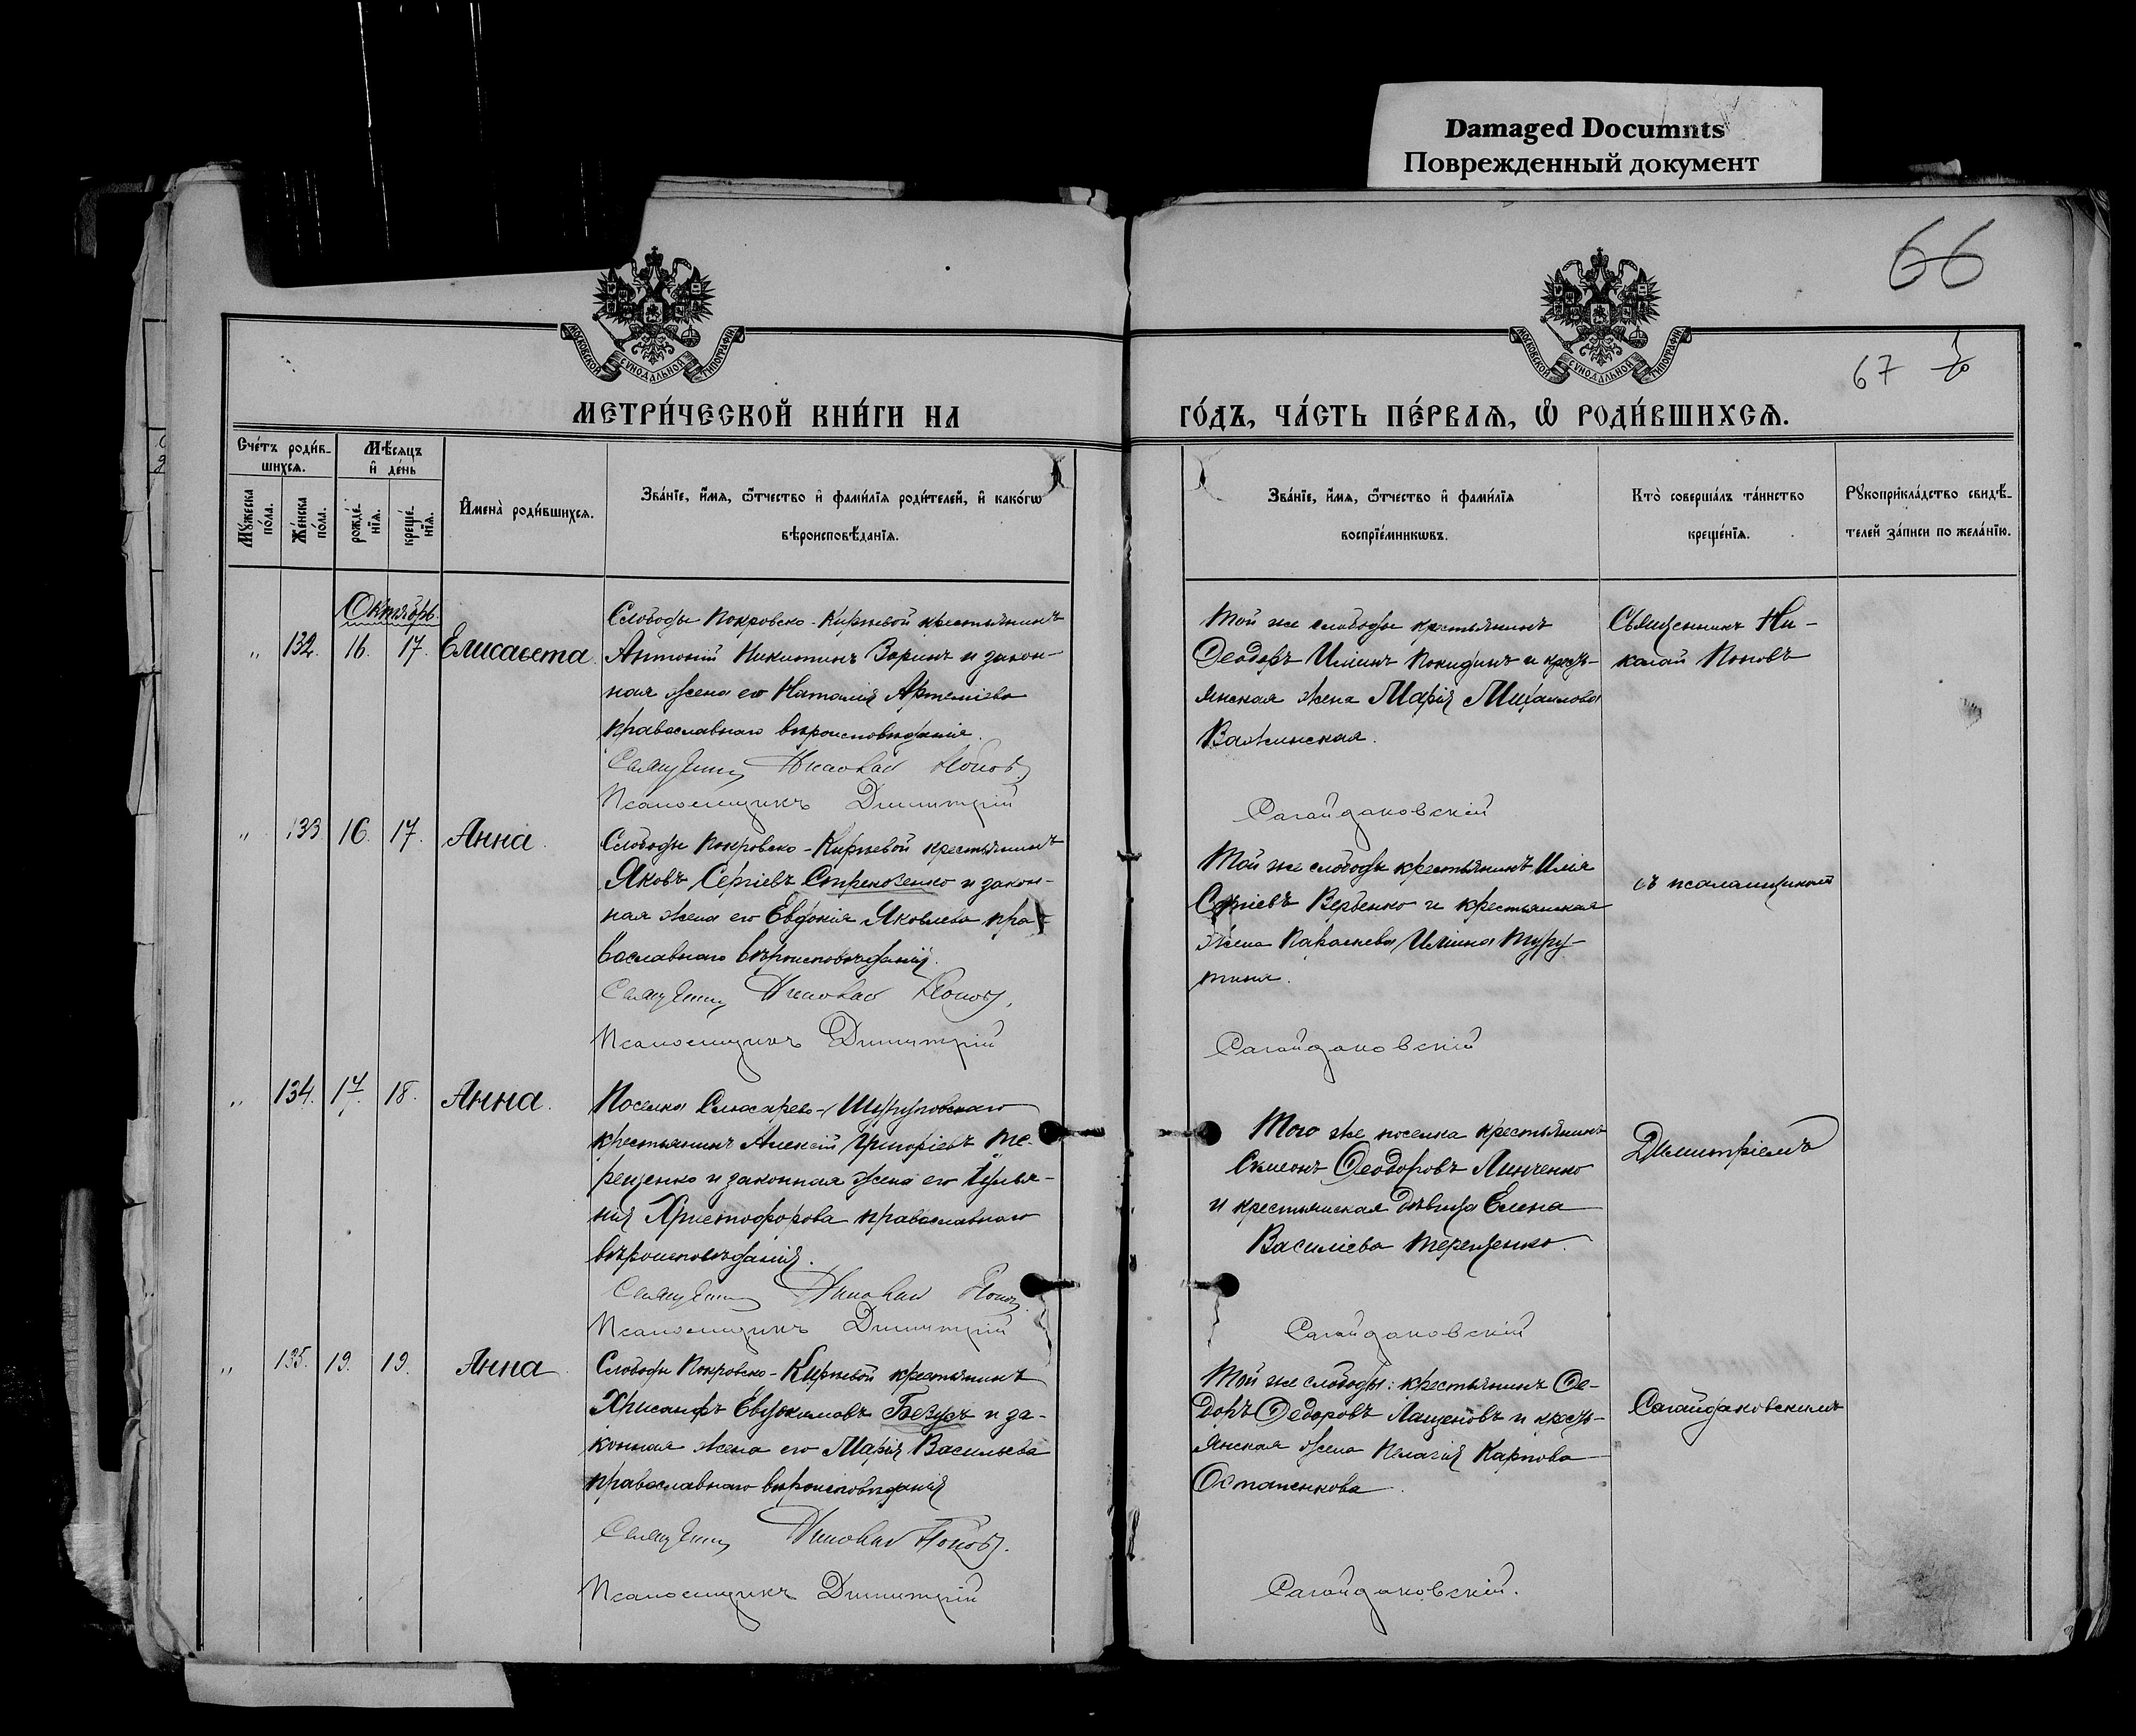 Damaged Documnts
Поврежденный документ
66
67
МОСКОВСКОЙ СУНОДАЛЬНОЙ ТИПОГРАФИИ
МОСКОВСКОЙ СУНОДАЛЬНОЙ ТИПОГРАФИИ
МЕТРИ́ЧЕСКОЙ КНИ́ГИ НА
ГО́ДЪ, ЧА́СТЬ ПЕ́РВАѦ, Ѽ РОДИ́ВШИХСѦ.
Сче́тъ роди́в-
шихсѧ.
Мꙋ́жеска
по́ла.
Же́нска
по́ла.
Мѣ́сѧцъ
и҆ де́нь
рожде́-
нїѧ.
креще́-
нїѧ.
И҆мена̀ роди́вшихсѧ.
Зва́нїе, и҆́мѧ, ѻ҆́тчество и҆ фами́лїѧ роди́телей, и҆ како́гѡ
вѣроисповѣ́данїѧ.
Зва́нїе, и҆́мѧ, ѻ҆́тчество и҆ фами́лїѧ
воспрїе́мникѡвъ.
Кто̀ соверша́лъ та́инство
креще́нїѧ.
Рꙋкоприкла́дство свидѣ́-
телей за́писи по жела́нїю.
Октябрь.
„ 132. 16. 17. Елисавета.
Слободы Покровско-Кирѣевой крестьянинъ
Антоній Никитинъ Зоринъ и закон-
ная жена его Наталія Артеміева
православнаго вѣроисповѣданія.
Священник Николай Попов.
Псаломщикъ Димитрій
Той же слободы крестьянинъ
Ѳеодоръ Иліинъ Покидинъ и кресть-
янская жена Марія Михаилова
Важинская.
Сагайдаковскій
Священникъ Ни-
колай Поповъ
„ 133. 16. 17. Анна.
Слободы Покровско-Кирѣевой крестьянинъ
Яковъ Сергіевъ и закон-
ная жена его Евдокія Яковлева пра-
вославнаго вѣроисповѣданія.
Священник Николай Попов.
Псаломщикъ Димитрій
Той же слободы крестьянинъ Илія
Сергіевъ Вербенко и крестьянская
жена Параскева Иліина
Сагайдаковскій
съ псаломщикомъ
„ 134. 17. 18. Анна.
Поселка Слюсарево-
крестьянинъ Алексій Григоріевъ Те-
рещенко и законная жена его Іулья-
нія Христофорова православнаго
вѣроисповѣданія.
Священник Николай Попов.
Псаломщикъ Димитрій
Того же поселка крестьянинъ
Симеонъ Ѳеодоровъ Линченко
и крестьянская дѣвица Елена
Василіева Терещенко.
Сагайдаковскій
Димитріемъ
„ 135. 19. 19. Анна.
Слободы Покровско-Кирѣевой крестьянинъ
Хрисанфъ Евдокимовъ и за-
конная жена его Марія Васильева
православнаго вѣроисповѣданія
Священник Николай Попов.
Псаломщикъ Димитрій
Той же слободы: крестьянинъ Ѳе-
доръ Ѳедоровъ Лащеновъ и кресть-
янская жена Пелагія Карпова
Остапенкова.
Сагайдаковскій.
Сагайдаковскимъ